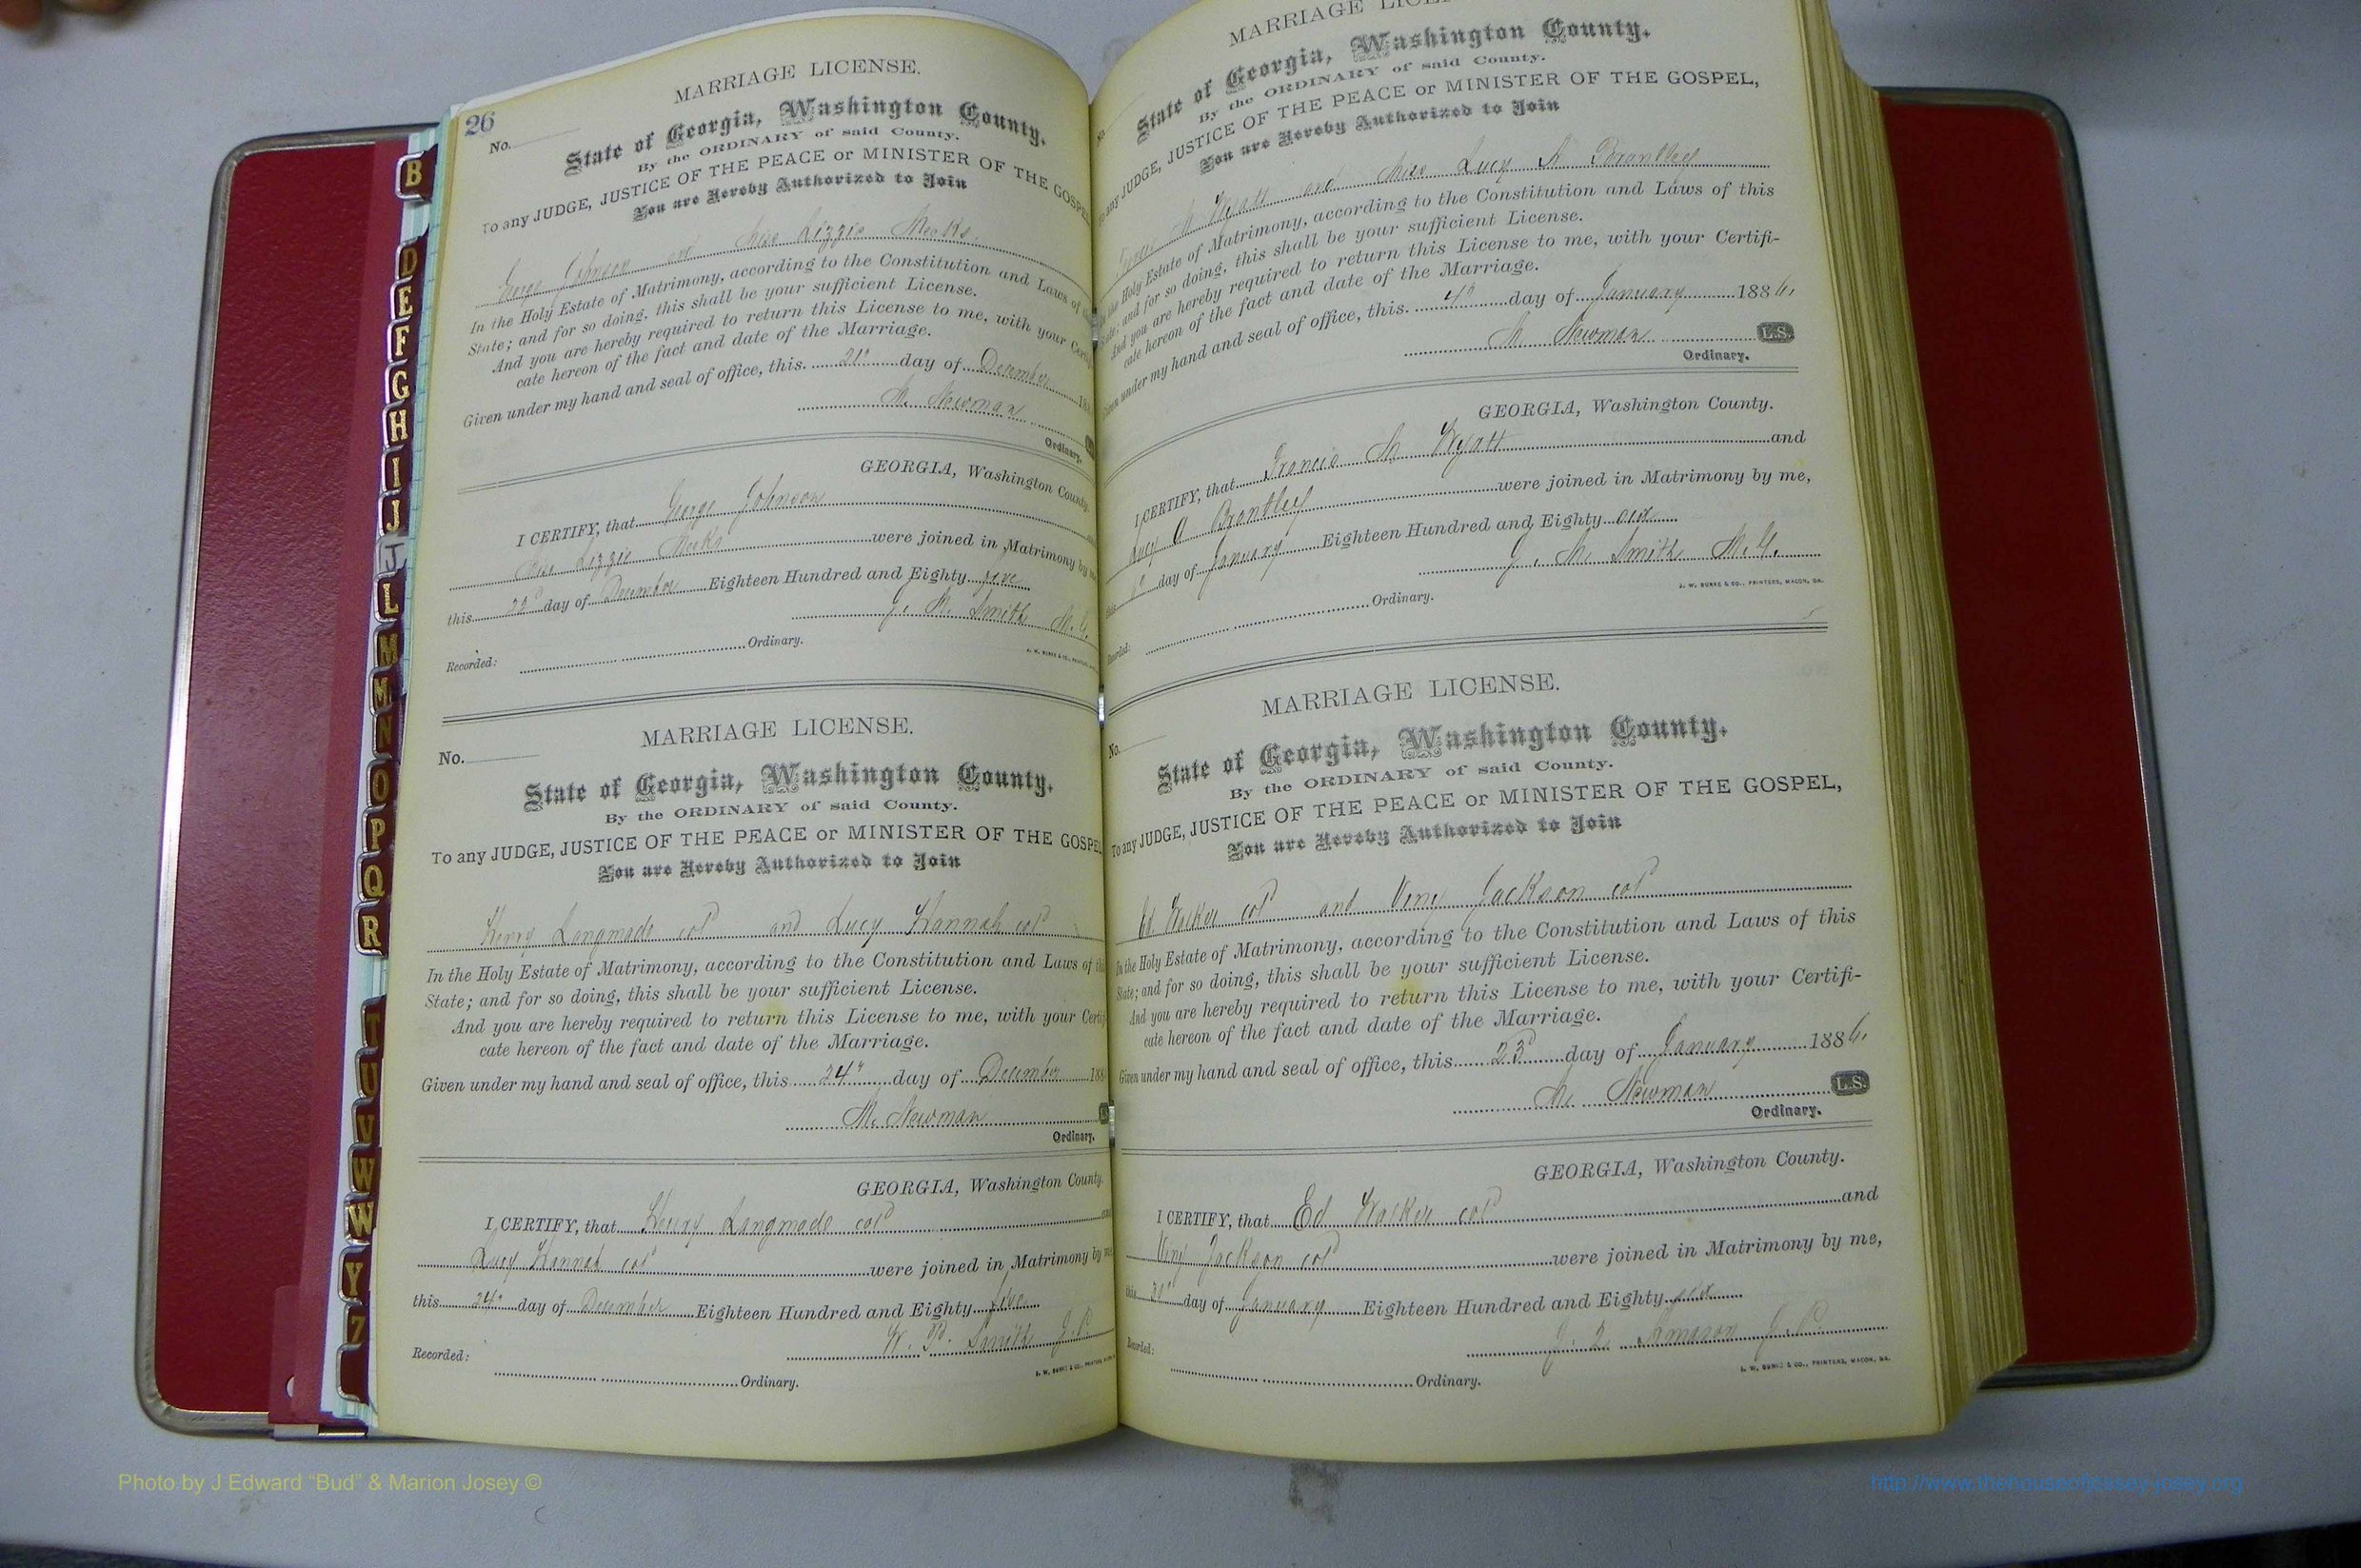 26
MARRIAGE LICENSE.
No.
State of Georgia, Washington County.
By the ORDINARY of said County.
To any JUDGE, JUSTICE OF THE PEACE or MINISTER OF THE GOSPEL
You are Hereby Authorized to Join
George Johnson and Miss Lizzie Meeks
In the Holy Estate of Matrimony, according to the Constitution and Laws of
State; and for so doing, this shall be your sufficient License.
And you are hereby required to return this License to me, with your Certi
cate hereon of the fact and date of the Marriage.
Given under my hand and seal of office, this 21st day of December 188
M. Newman
Ordinary.
GEORGIA, Washington County.
I CERTIFY, that George Johnson
Miss Lizzie Meeks were joined in Matrimony by
this 22d day of December Eighteen Hundred and Eighty five
J. M. Smith M.G.
Recorded: Ordinary.
MARRIAGE LICENSE.
No.
State of Georgia, Washington County.
By the ORDINARY of said County.
To any JUDGE, JUSTICE OF THE PEACE or MINISTER OF THE GOSPEL
You are Hereby Authorized to Join
Henry Langmade cold and Lucy Hannah cold
In the Holy Estate of Matrimony, according to the Constitution and Laws of
State; and for so doing, this shall be your sufficient License.
And you are hereby required to return this License to me, with your Certi
cate hereon of the fact and date of the Marriage.
Given under my hand and seal of office, this 24th day of December 188
M. Newman
Ordinary.
GEORGIA, Washington County.
I CERTIFY, that Henry Langmade cold
Lucy Hannah cold were joined in Matrimony by me
this 24th day of December Eighteen Hundred and Eighty five
W. P. Smith J.P.
Recorded: Ordinary.
MARRIAGE LICEN
No.
State of Georgia, Washington County.
By the ORDINARY of said County.
To any JUDGE, JUSTICE OF THE PEACE or MINISTER OF THE GOSPEL,
You are Hereby Authorized to Join
M Wyatt and Miss Lucy A Brantley
the Holy Estate of Matrimony, according to the Constitution and Laws of this
State; and for so doing, this shall be your sufficient License.
And you are hereby required to return this License to me, with your Certifi-
cate hereon of the fact and date of the Marriage.
Given under my hand and seal of office, this. 4th day of January 1886,
M. Newman L.S.
Ordinary.
GEORGIA, Washington County.
I CERTIFY, that Francis M Wyatt and
Lucy A Brantley were joined in Matrimony by me,
this day of January Eighteen Hundred and Eighty six
J. M. Smith M.G.
J. W. BURKE & CO., PRINTERS, MACON, GA.
Recorded: Ordinary.
MARRIAGE LICENSE.
No.
State of Georgia, Washington County.
By the ORDINARY of said County.
To any JUDGE, JUSTICE OF THE PEACE or MINISTER OF THE GOSPEL,
You are Hereby Authorized to Join
Ed. Walker cold and Viny Jackson cold
In the Holy Estate of Matrimony, according to the Constitution and Laws of this
State; and for so doing, this shall be your sufficient License.
And you are hereby required to return this License to me, with your Certifi-
cate hereon of the fact and date of the Marriage.
Given under my hand and seal of office, this 23d day of January 1886,
M. Newman L.S.
Ordinary.
GEORGIA, Washington County.
I CERTIFY, that Ed Walker cold and
Viny Jackson cold were joined in Matrimony by me,
this day of January Eighteen Hundred and Eighty six
J. P.
J. W. BURKE & CO., PRINTERS, MACON, GA.
Recorded: Ordinary.
B
D
E
F
G
H
I
J
J
L
M
M
N
O
P
Q
R
T
U
V
W
W
Y
Z
Photo by J Edward “Bud” & Marion Josey ©
http://www.thehouseofjossey-josey.org